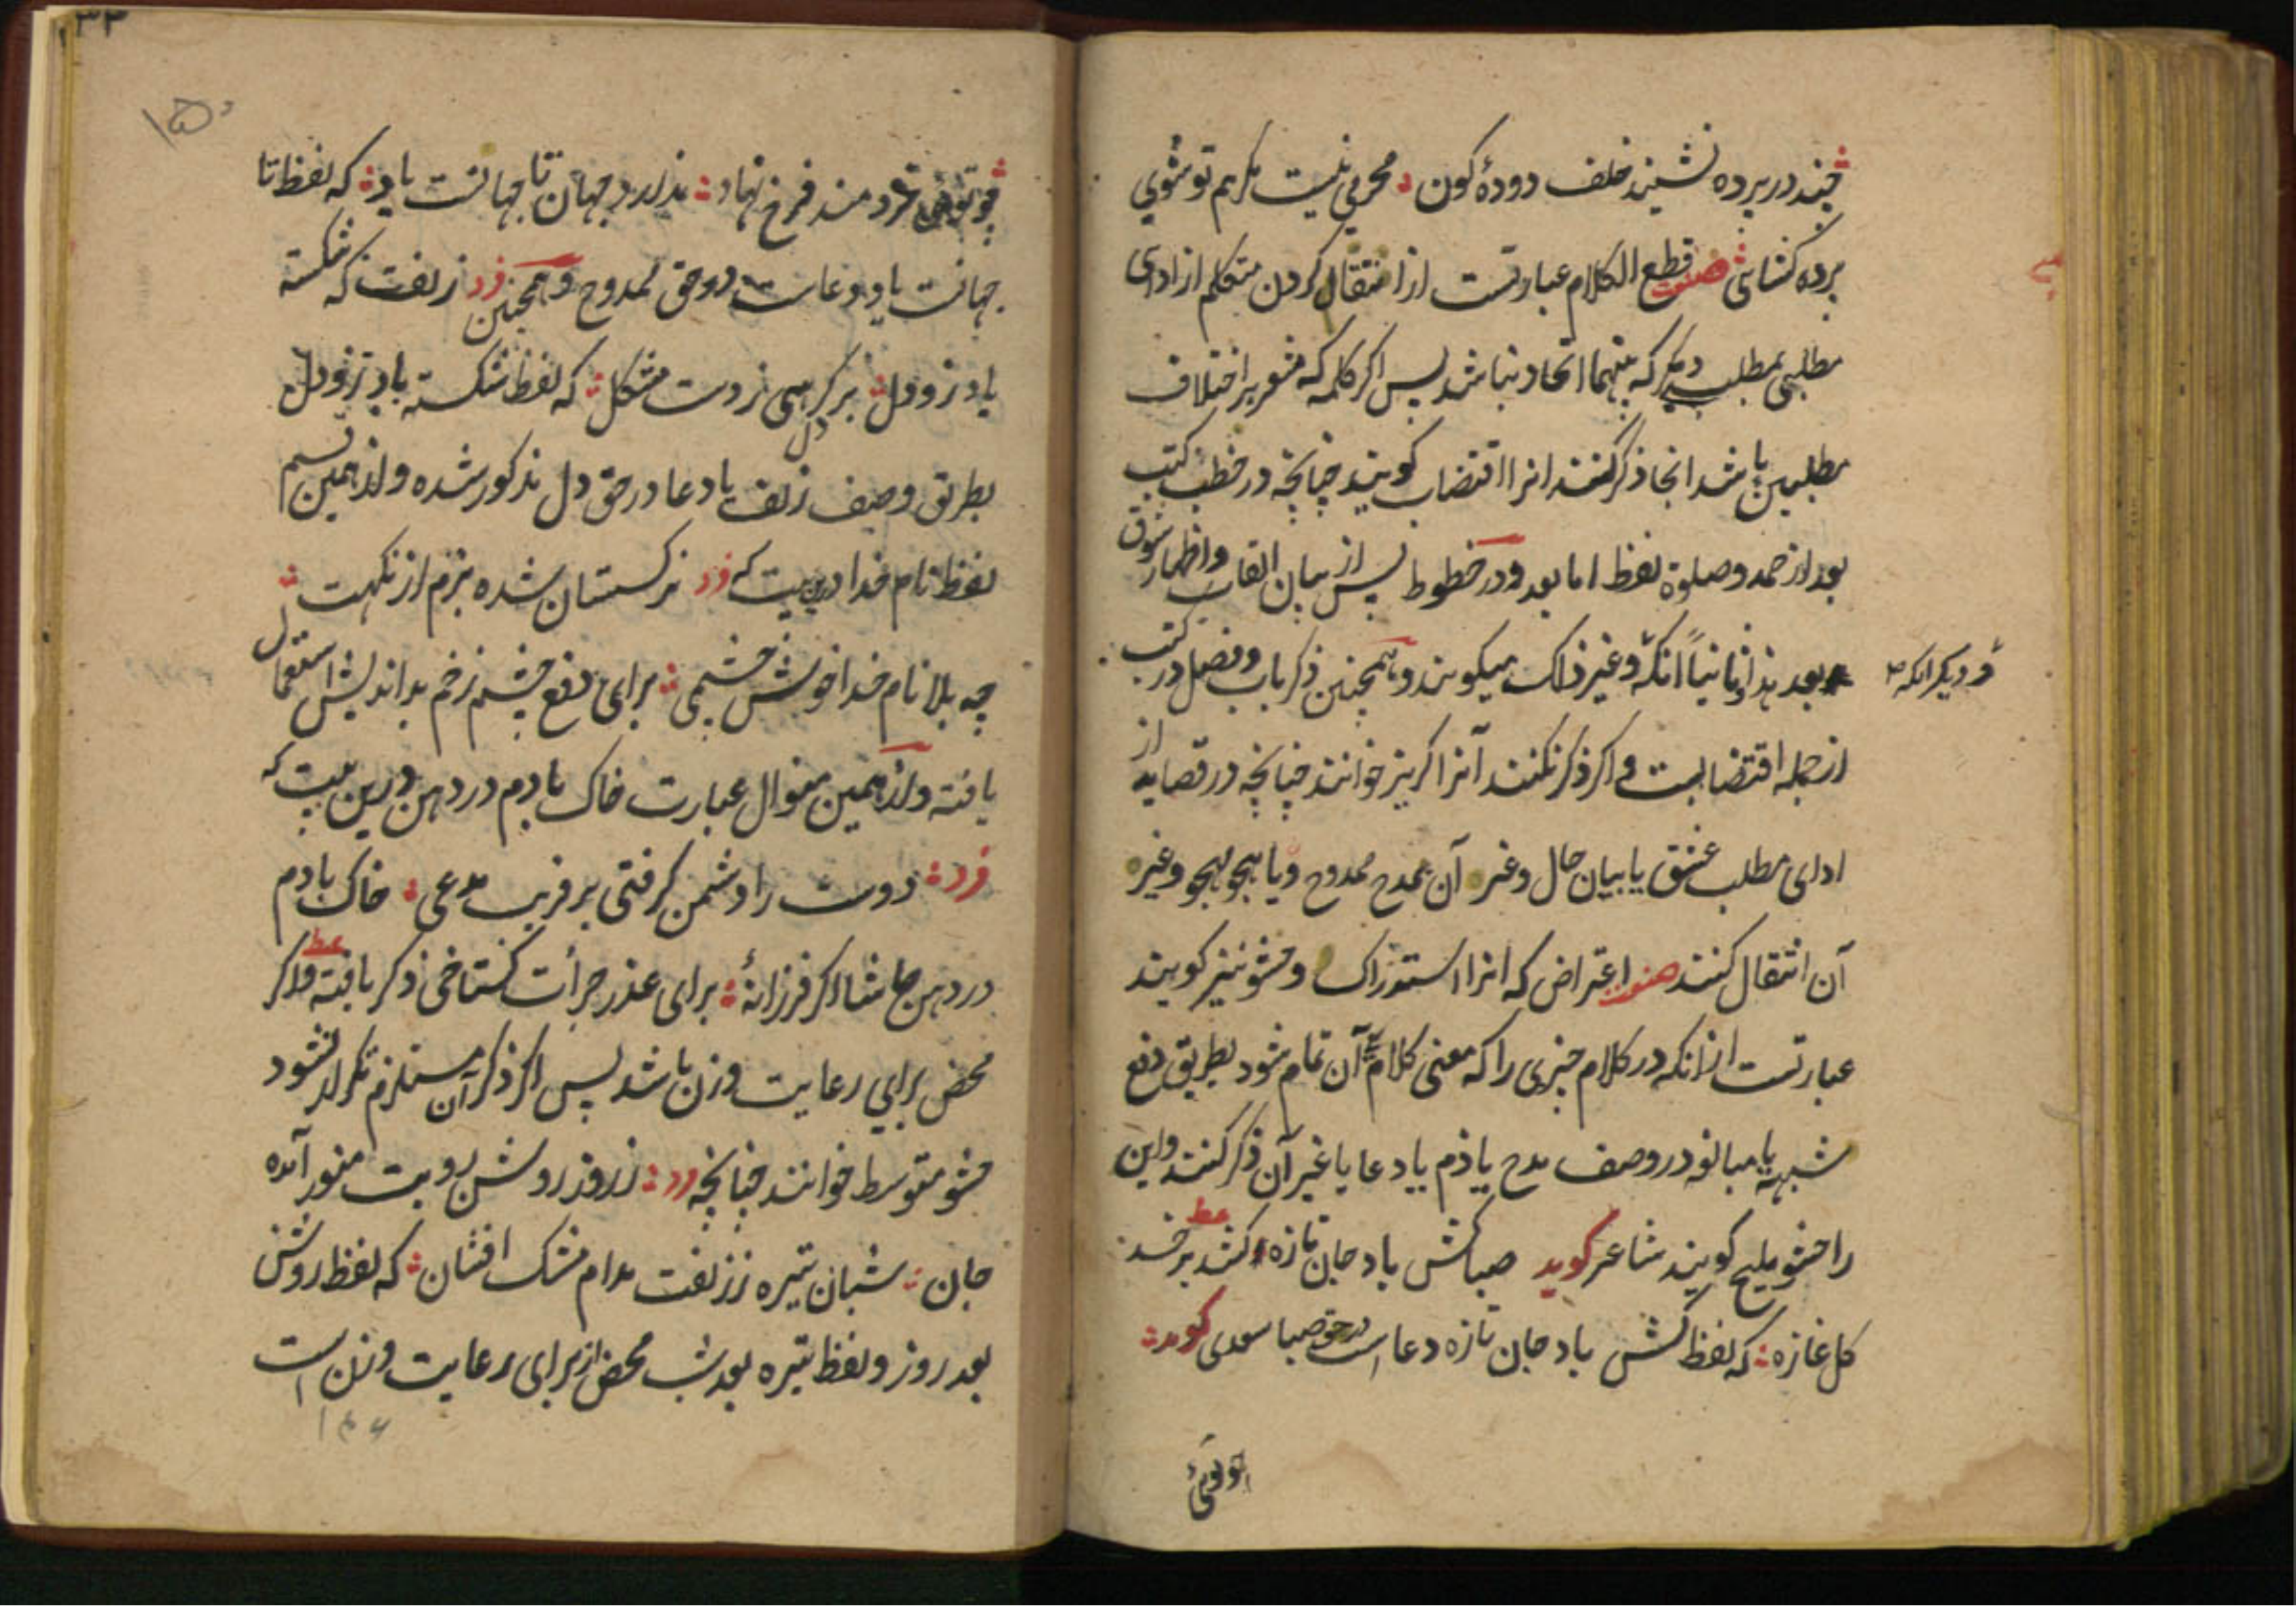 چند در پرده نشیند خلف دودهٔ کون محرمی نیست مگر هم تو شوی
پرده کشای صنعت قطع الکلام عبارتست از انتقال کردن متکلم از ادای
مطلبی بمطلب دیگر که بینهما اتحاد نباشد پس اگر کلمه که مشعر بر اختلاف
مطلبین باشد انجا ذکر کنند انرا اقتضاب کویند چنانچه در خطب کتب
بعد از حمد و صلوة لفظ اما بعد و در خطوط پس از بیان القاب و اظهار شوق
بعد هذا و ثانیاً انکه و غیر ذلک میکویند و همچنین ذکر باب و فصل در کتب
و دیگر انکه
از جمله اقتضابست و اکر ذکر نکنند آنرا کریز خوانند چنانچه در قصاید از
ادای مطلب عشق یا بیان حال و غیره آن بمدح ممدوح و یا بهجو مهجو و غیره
آن انتقال کنند صنعت اعتراض که انرا استدراک و حشو نیز کویند
عبارتست از انکه در کلام چیزی را که معنی کلام بی آن تمام شود بطریق دفع
شبهه یا مبالغه در وصف مدح یا ذم یا دعا یا غیر آن ذکر کنند و این
را حشو ملیح کویند شاعر کوید صبا کش باد جان تازه کشد بر خد
کل غازه که لفظ کش باد جان تازه دعا است در حق صبا سعدی کوید
چو توئی
چو توئی خردمند فرخ نهاد ندارد جهان تا جهانست یاد که لفظ تا
جهانست یاد دعاست در حق ممدوح و همچنین فرد زلفت که شکسته
باد زو دل بر کرسی زدست مشکل که لفظ شکسته باد زو دل
بطریق وصف زلف یا دعا در حق دل مذکور شده و از همین قسم
لفظ نام خدا درین بیت که فرد نرکستان شده بزم از نکهت
چه بلا نام خدا خوش چشمی برای دفع چشم زخم بد اندیش استعمال
یافته و از همین منوال عبارت خاک بادم در دهن درین بیت که
فرد دوست را دشمن کرفتی بر فریب مدعی خاک بادم
در دهن حاشا اکر فرزانهٔ برای عذر جرأت کستاخی ذکر یافته و اکر
محض برای رعایت وزن باشد پس اکر ذکر آن مستلزم تکرار نشود
حشو متوسط خوانند چنانچه فرد ز روز روشن رویت منور آمده
جان شبان تیره ز زلفت مدام مشک افشان که لفظ روشن
بعد روز و لفظ تیره بعد شب محض از برای رعایت وزن است